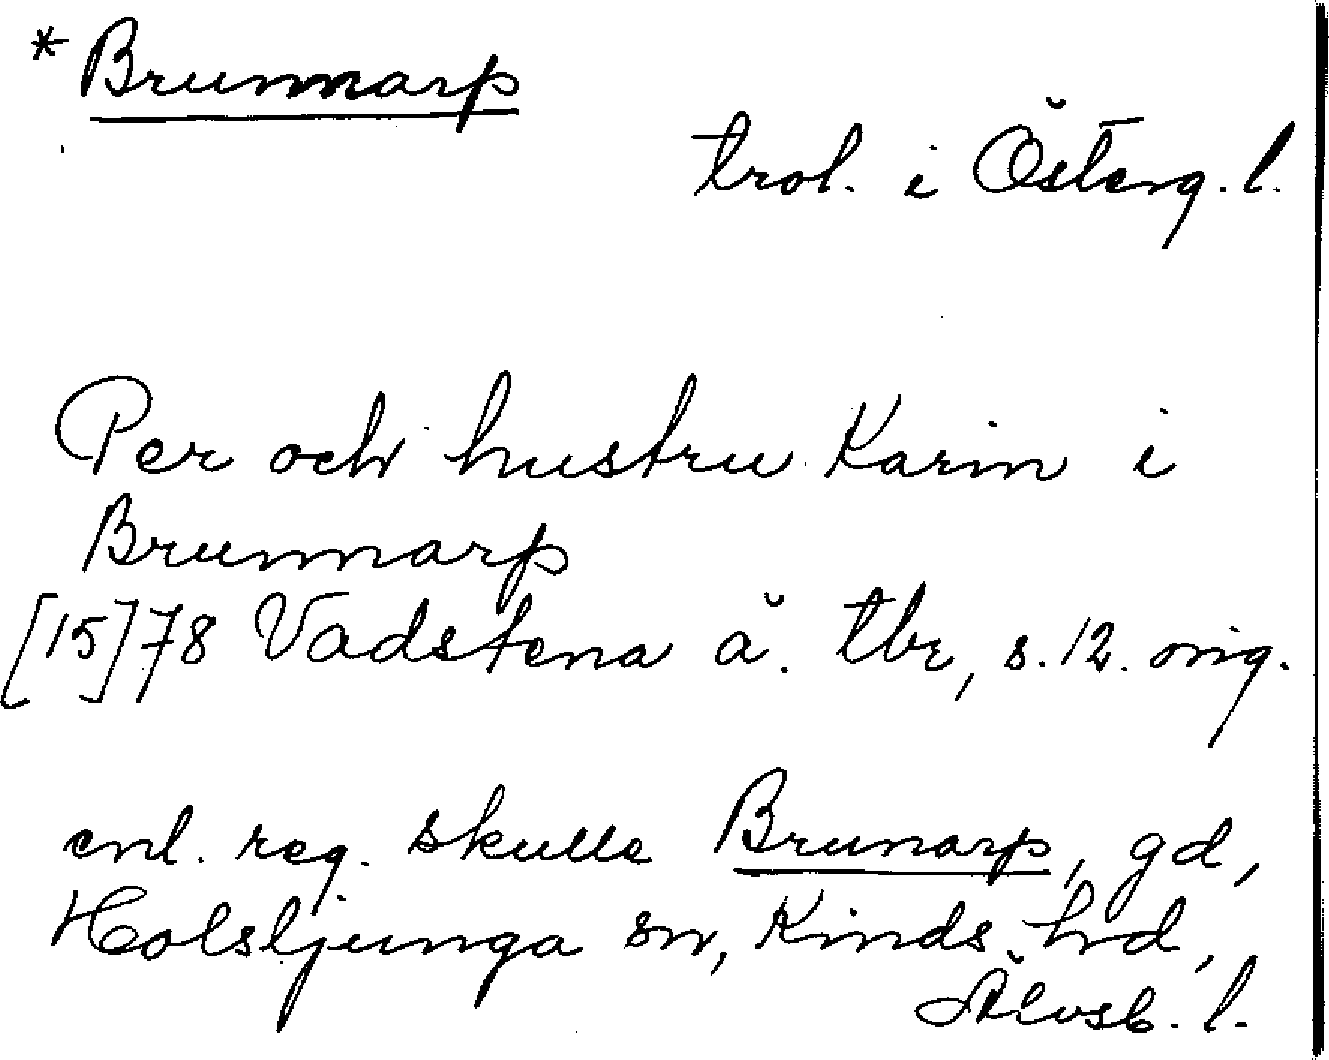 * Brunnarp
trol. i Österg. l.
Per och hustru Karin i
Brunnarp
[15]78 Vadstena ä. tbr, s. 12. orig.
enl. reg. skulle Brunarp, gd,
Holsljunga sn, Kinds hd,
Älvsb. l.